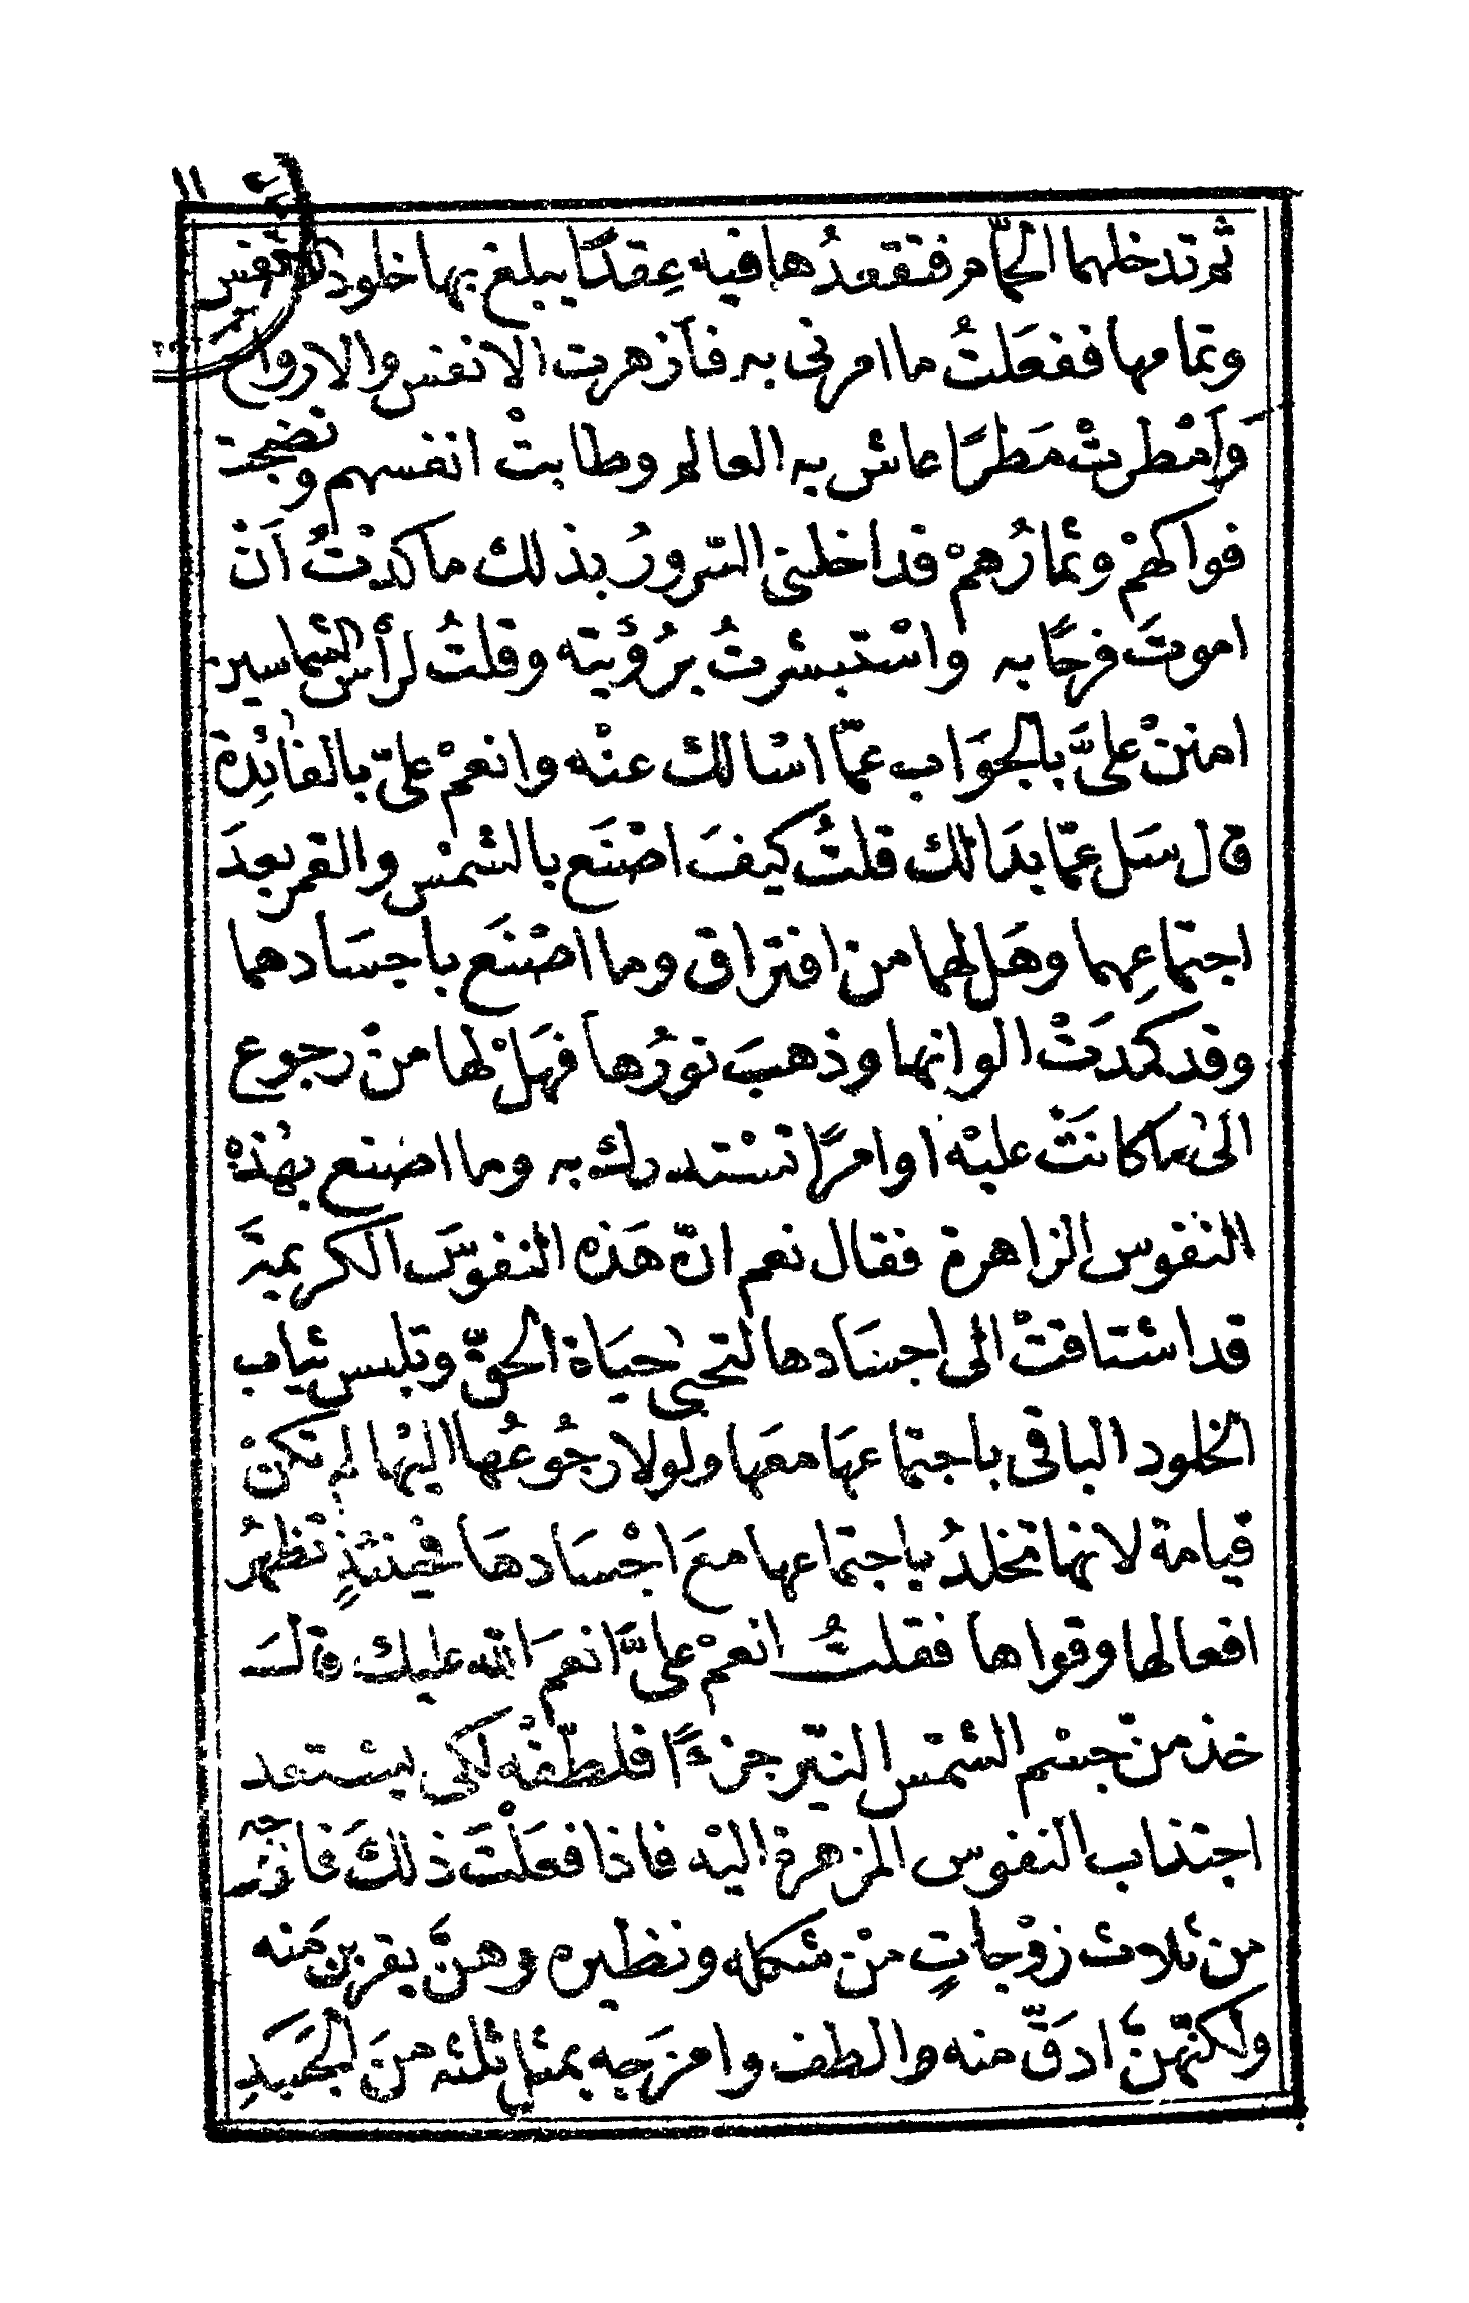 ١١
ثم تدخلهما الحمّام فتقعدُها فيه عِقدًا يبلغ بها خلود النفس
وتمامها ففعَلتُ ما امرنى به فأزهرت الانفس والارواح
وأمْطرتْ مَطرًا عاش به العالم وطابتْ انفسهم ونضجت
فواكهمْ وثمارُهمْ فداخلنى السّرورُ بذلك ما كدْتُ أنْ
اموتَ فرحًا به واسْتبشرتُ برُؤْيته وقلتُ لرأس الشماسين
امننْ علىَّ بالجوَاب عمّا اسْالك عنْه وانعمْ علىّ بالفائِدة
قال سَل عمّا بدَا لك قلتُ كيفَ اصْنَع بالشمْس والقمر بعدَ
اجتماعِهما وهَل لهما من افتراق وما اصْنَع باجسَادهما
وقد كمَدَتْ الوانهما وذهبَ نورُها فهَلْ لها منْ رجوع
الى ما كانَتْ عليْه او امرًا تسْتدرك به وما اصْنع بهذه
النفوس الزاهرة فقال نعم انّ هَذه النفوسَ الكريمَة
قد اشتاقتْ الى اجسَادها لتحيى حيَاة الحقّ وتلبس ثياب
الخلود الباقى باجتماعهَا معَها ولولا رجُوعُها اليْها لم تكنْ
قيامة لانها تخلدُ باجتماعها معَ اجْسَادهَا فحينئذٍ تظهرُ
افعالها وقواها فقلتُ انعمْ علىَّ انعمَ الله عليك قالَ
خذ منْ جسْم الشمْس النيّر جزءًا فلطّفْه لكى يستعد
اجتذاب النفوس المزهرة اليْه فاذا فعَلْتَ ذلكَ فازوّجه
من ثلاث زوْجاتٍ منْ شكله ونظيره وهنَّ يقربن مَنه
ولكنّهنَّ ادَقّ منه والطف وامزَجه بمثل ثلثه منَ الجَسَدِ